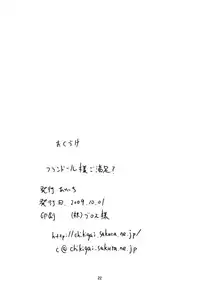 おくづけ
フランドール様ご満足?
発行 おたいち
発行日 2009.10.01
印刷 (株)プロス様
http://chikigai.sakura.ne.jp/
c@chikigai.sakura.ne.jp
22